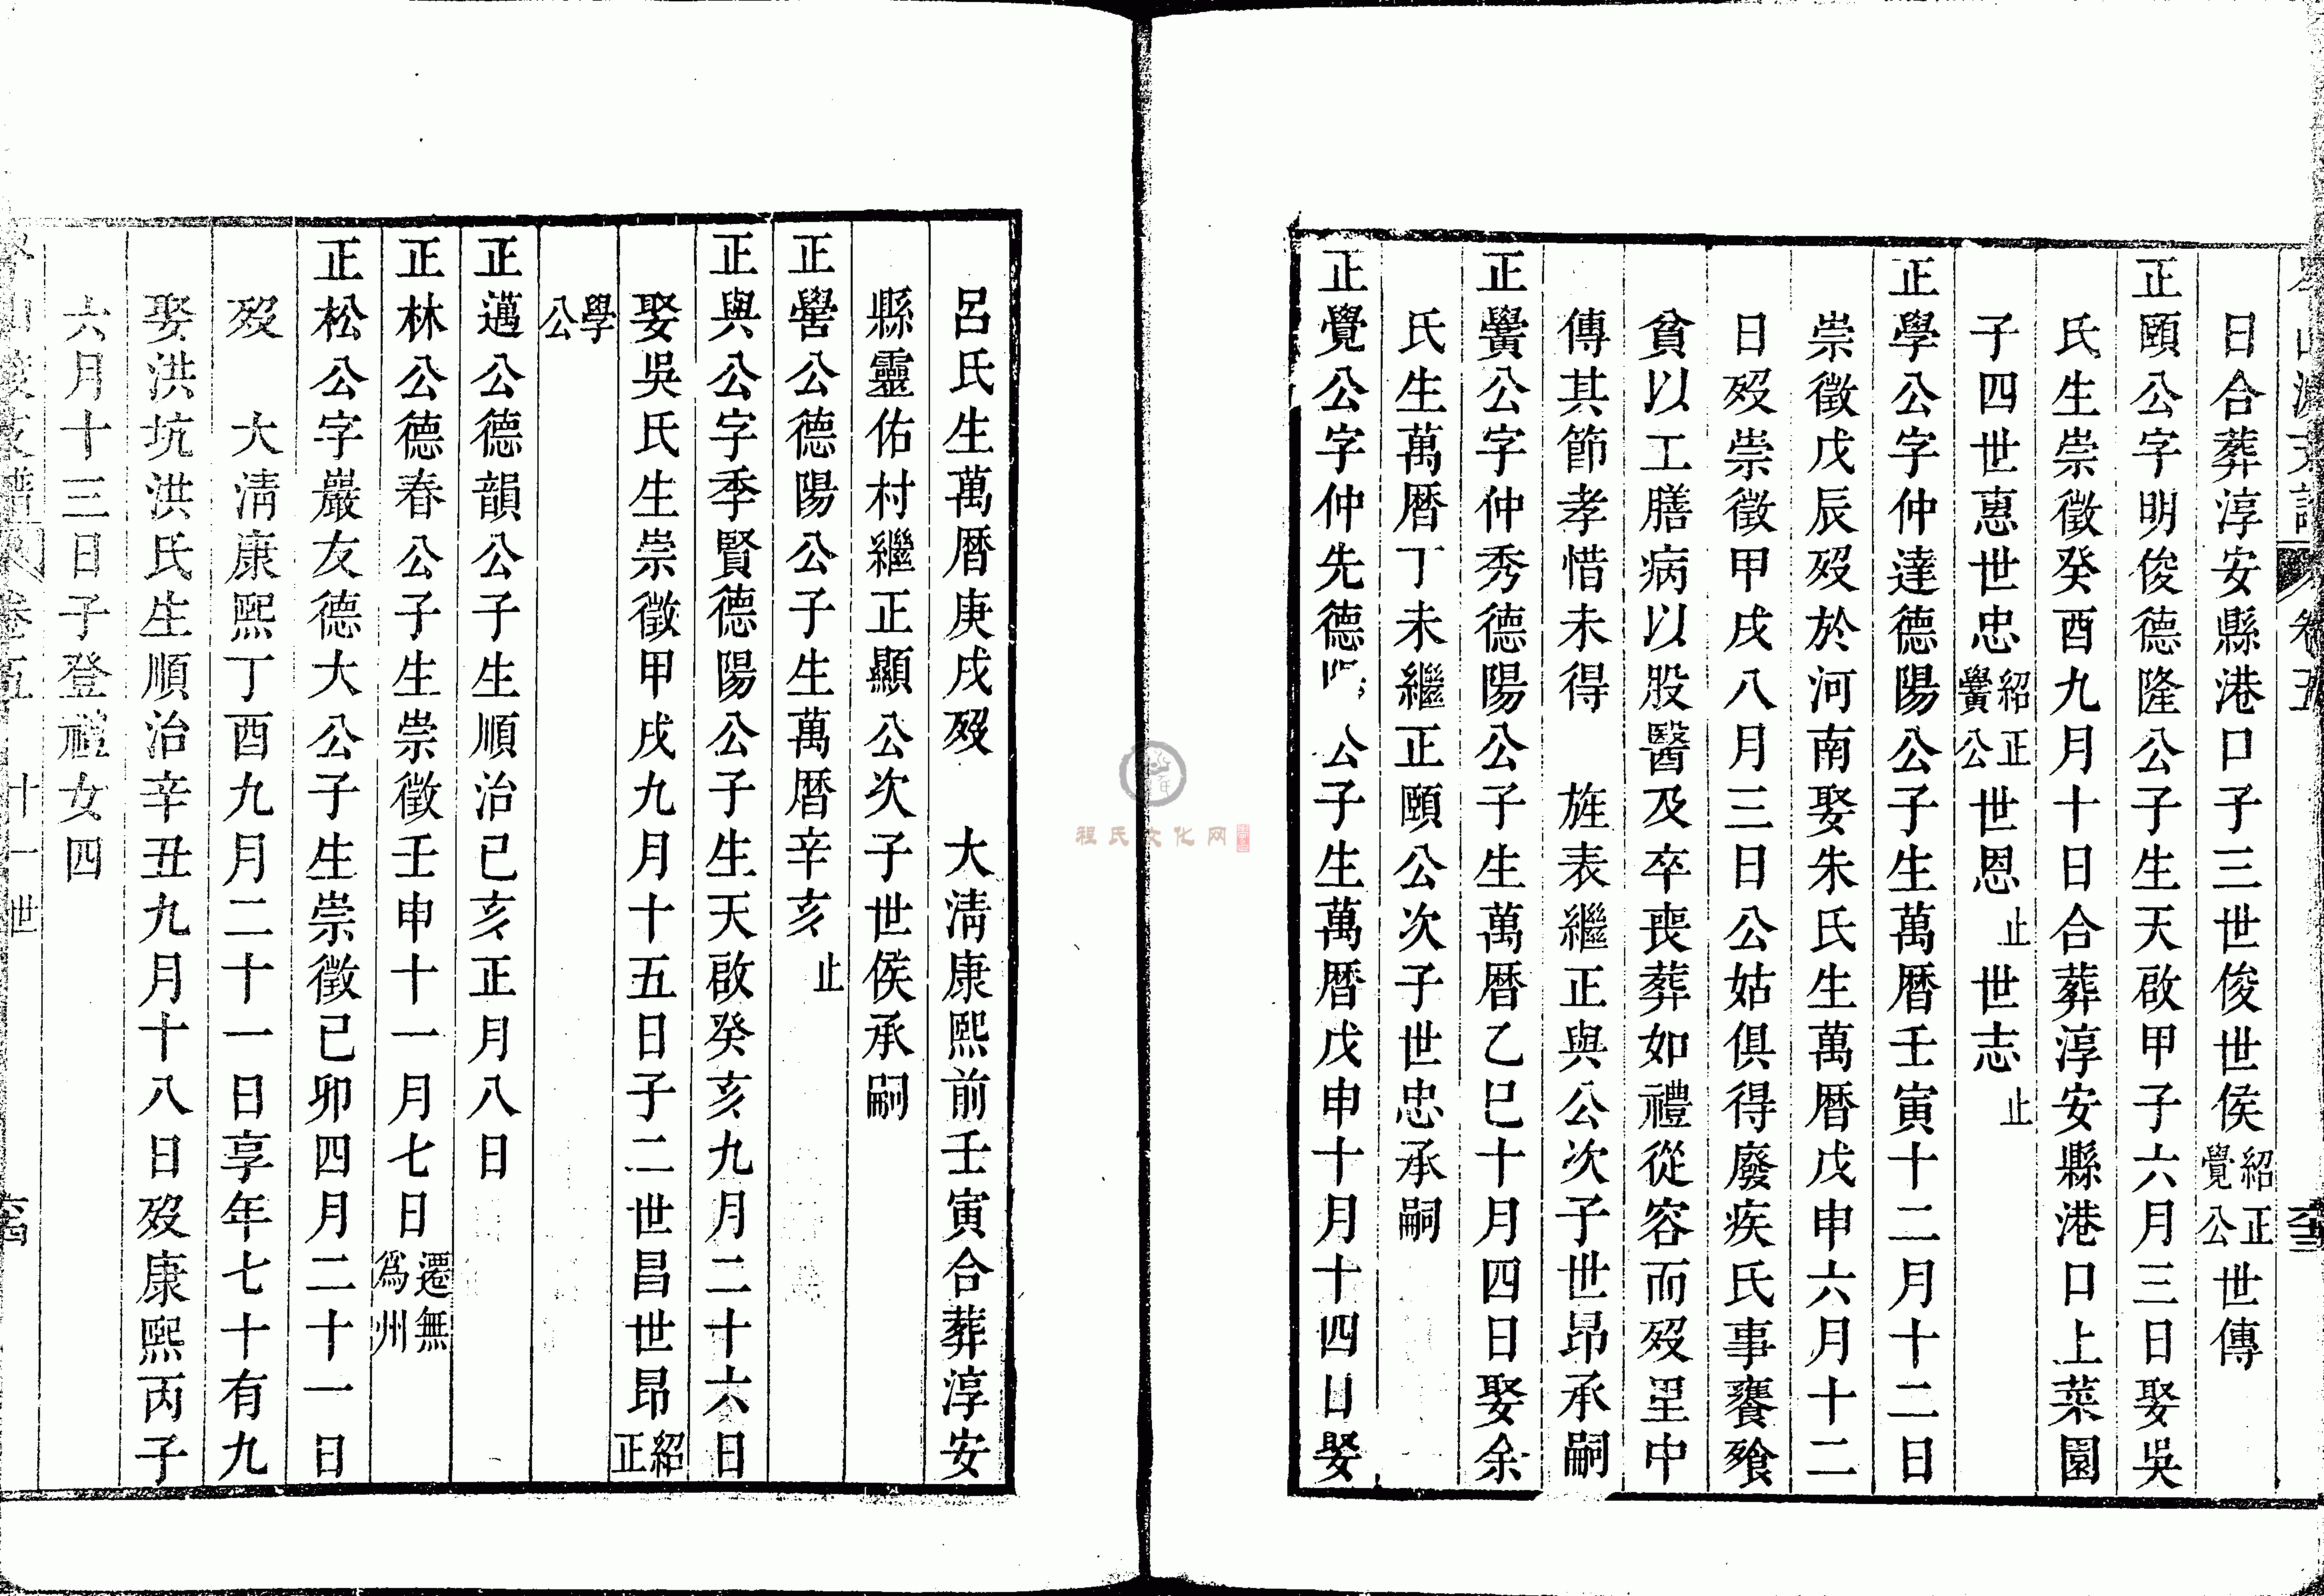 日合葬淳安縣港口子三世俊世侯紹正覺公世傳
正頤公字明俊德隆公子生天啟甲子六月三日娶吳
氏生崇徵癸酉九月十日合葬淳安縣港口上菜園
子四世惠世忠紹正黌公世恩止世志止
正學公字仲達德陽公子生萬曆壬寅十二月十二日
崇徵戊辰歿於河南娶朱氏生萬曆戊申六月十二
日歿崇徵甲戌八月三日公姑俱得廢疾氏事饔飱
貧以工膳病以股醫及卒喪葬如禮從容而歿里中
傳其節孝惜未得 旌表繼正與公次子世昂承嗣
正黌公字仲秀德陽公子生萬曆乙巳十月四日娶余
氏生萬曆丁未繼正頤公次子世忠承嗣
正覺公字仲先德公子生萬曆戊申十月十四日娶
呂氏生萬曆庚戌歿 大淸康熙前壬寅合葬淳安
縣靈佑村繼正顯公次子世侯承嗣
正嚳公德陽公子生萬曆辛亥止
正與公字季賢德陽公子生天啟癸亥九月二十六日
娶吳氏生崇徵甲戌九月十五日子二世昌世昂紹正
學公
正邁公德韻公子生順治己亥正月八日
正林公德春公子生崇徵壬申十一月七日遷無爲州
正松公字嚴友德大公子生崇徵己卯四月二十一日
歿 大淸康熙丁酉九月二十一日享年七十有九
娶洪坑洪氏生順治辛丑九月十八日歿康熙丙子
六月十三日子登禮女四
卷五 十一世
程氏文化网